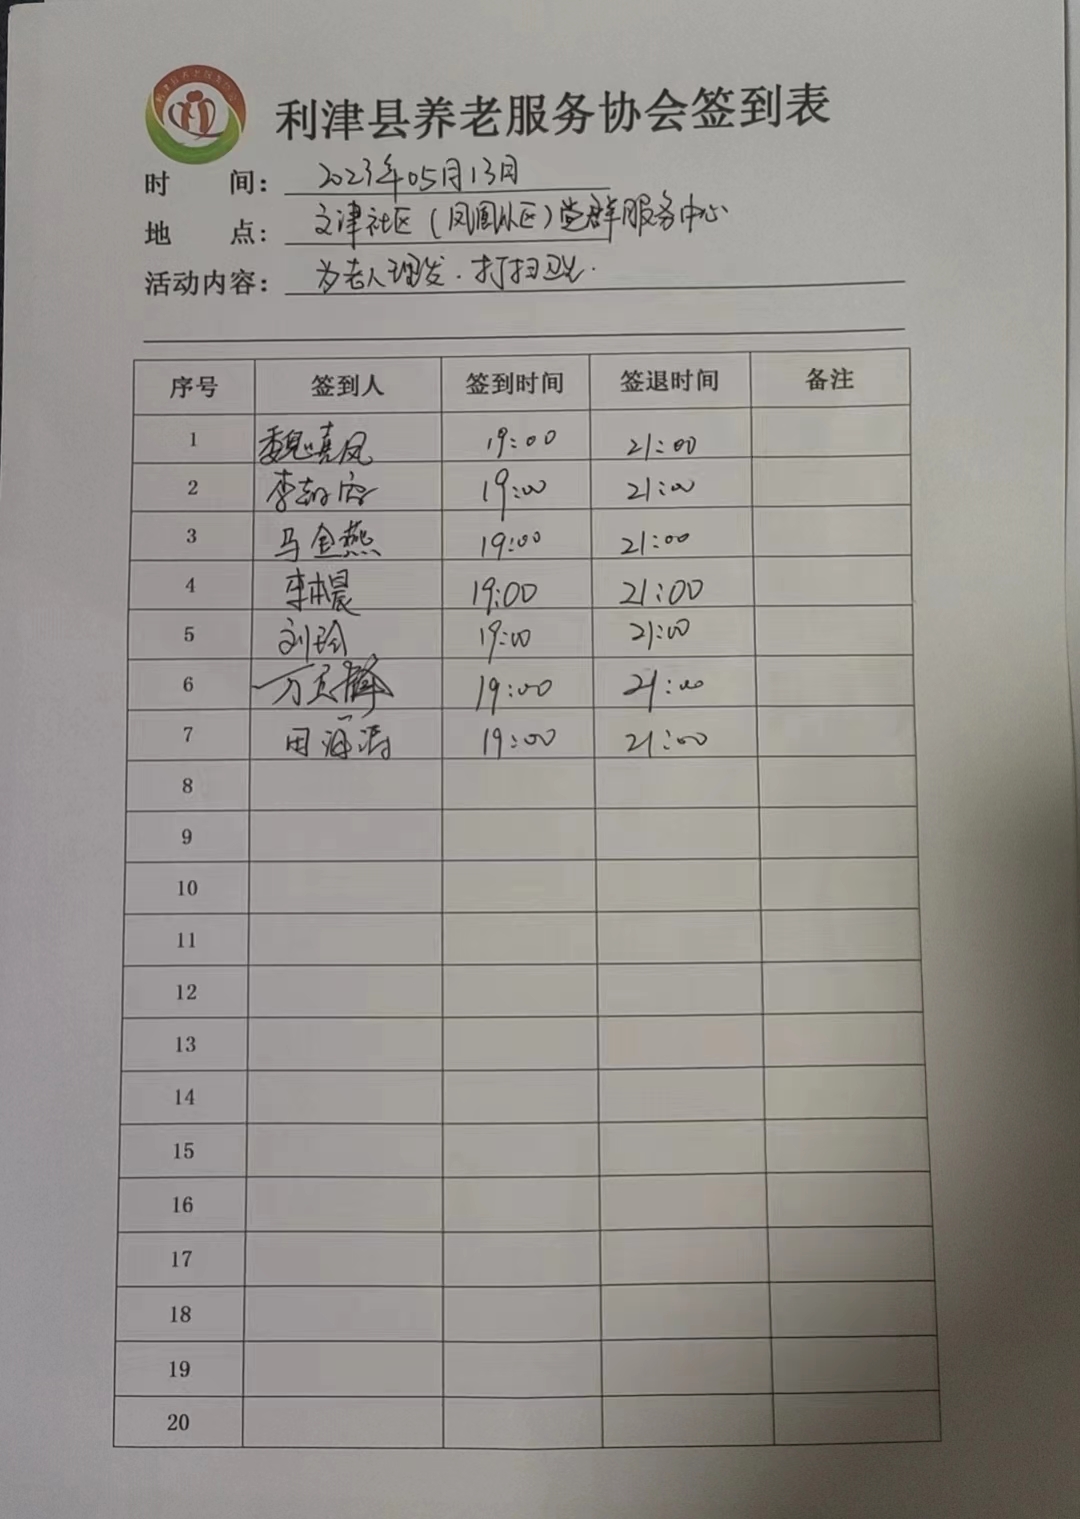 利津县养老服务协会签到表
时 间: 2023年05月13日
地 点: 文津社区(凤凰社区)党群服务中心
活动内容: 为老人理发.打扫卫生.
序号 签到人 签到时间 签退时间 备注
1 魏嘻凤 19:00 21:00
2 李 19:00 21:00
3 马金燕 19:00 21:00
4 李林晨 19:00 21:00
5 刘玲 19:00 21:00
6 万 19:00 21:00
7 田海涛 19:00 21:00
8
9
10
11
12
13
14
15
16
17
18
19
20